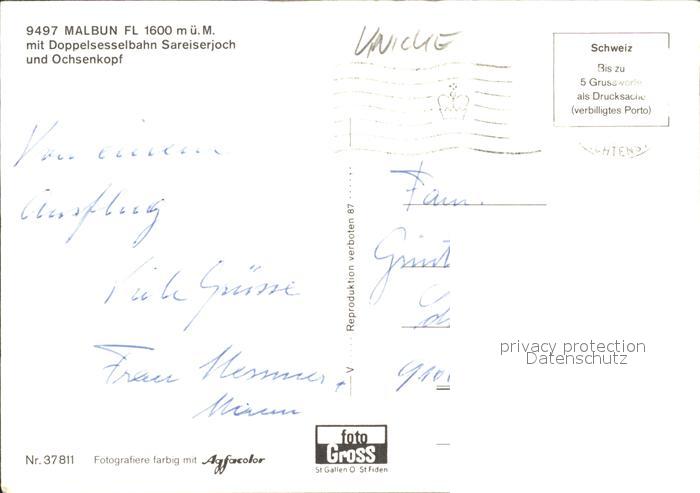 9497 MALBUN FL 1600 m ü. M.
mit Doppelsesselbahn Sareiserjoch
und Ochsenkopf
UNICKE
Schweiz
Bis zu
5 Grussworte
als Drucksache
(verbilligtes Porto)
Von einem
Ausflug
Viele Grüsse
Frau Messmer +
Mann
Reproduktion verboten 87
V
Fam.
privacy protection
Datenschutz
Nr. 37811 Fotografiere farbig mit Agfacolor
foto
Gross
St Gallen O St Fiden